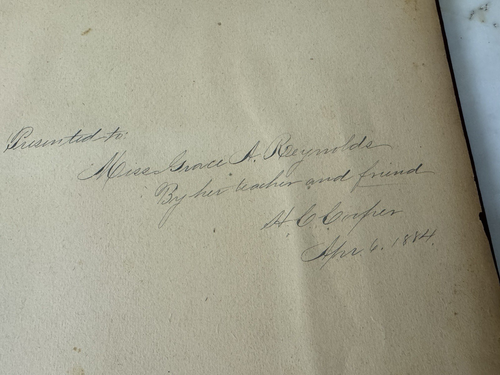 Presented to:
Miss Grace A. Reynolds
By her teacher and friend
H. C. Cooper
Apr. 6, 1884.